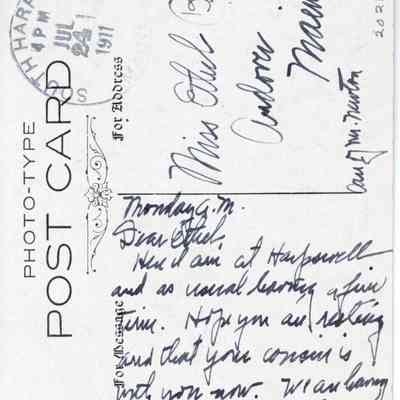 TH HARP
JUL
24
4 PM
1911
PHOTO-TYPE
POST CARD
For Address
For Message
Miss Ethel
Andover
Maine
Care of Mr. Newton
202
Monday a.m.
Dear Ethel,
Here I am at Harpswell
and as usual having a fine
time. Hope you are resting
and that your cousin is
with you now. We are having